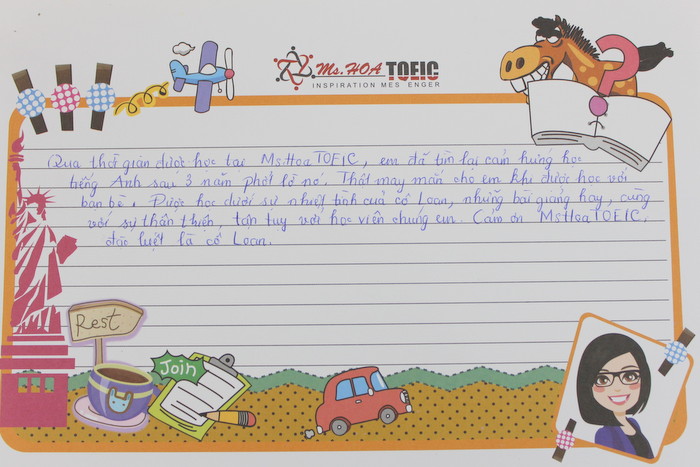 Ms. HOA TOEIC
INSPIRATION MES ENGER
?
Qua thời gian được học tại Ms.Hoa TOEIC, em đã tìm lại cảm hứng học
tiếng Anh sau 3 năm phớt lờ nó. Thật may mắn cho em khi được học với
bạn bè. Được học dưới sự nhiệt tình của cô Loan, những bài giảng hay, cùng
với sự thân thiện, tận tụy với học viên chúng em. Cảm ơn Ms Hoa TOEIC,
đặc biệt là cô Loan.
Rest
Join